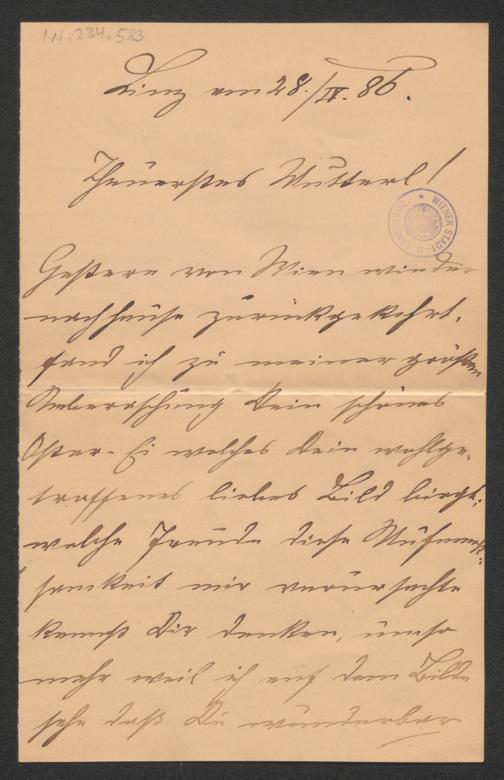 I.N. 234.583
Linz am 28./IV. 86.
Theuerstes Mutterl!
WIENER STADT-
Gestern von Wien wieder
nachhause zurückgekehrt,
fand ich zu meiner größten
Ueberraschung Dein schönes
Oster-Ei welches Dein wohlge-
troffenes liebes Bild birgt;
welche Freude diese Aufmerk-
samkeit mir verursachte
kannst Dir denken, umso
mehr weil ich auf dem Bilde
sehe daß Du wunderbar